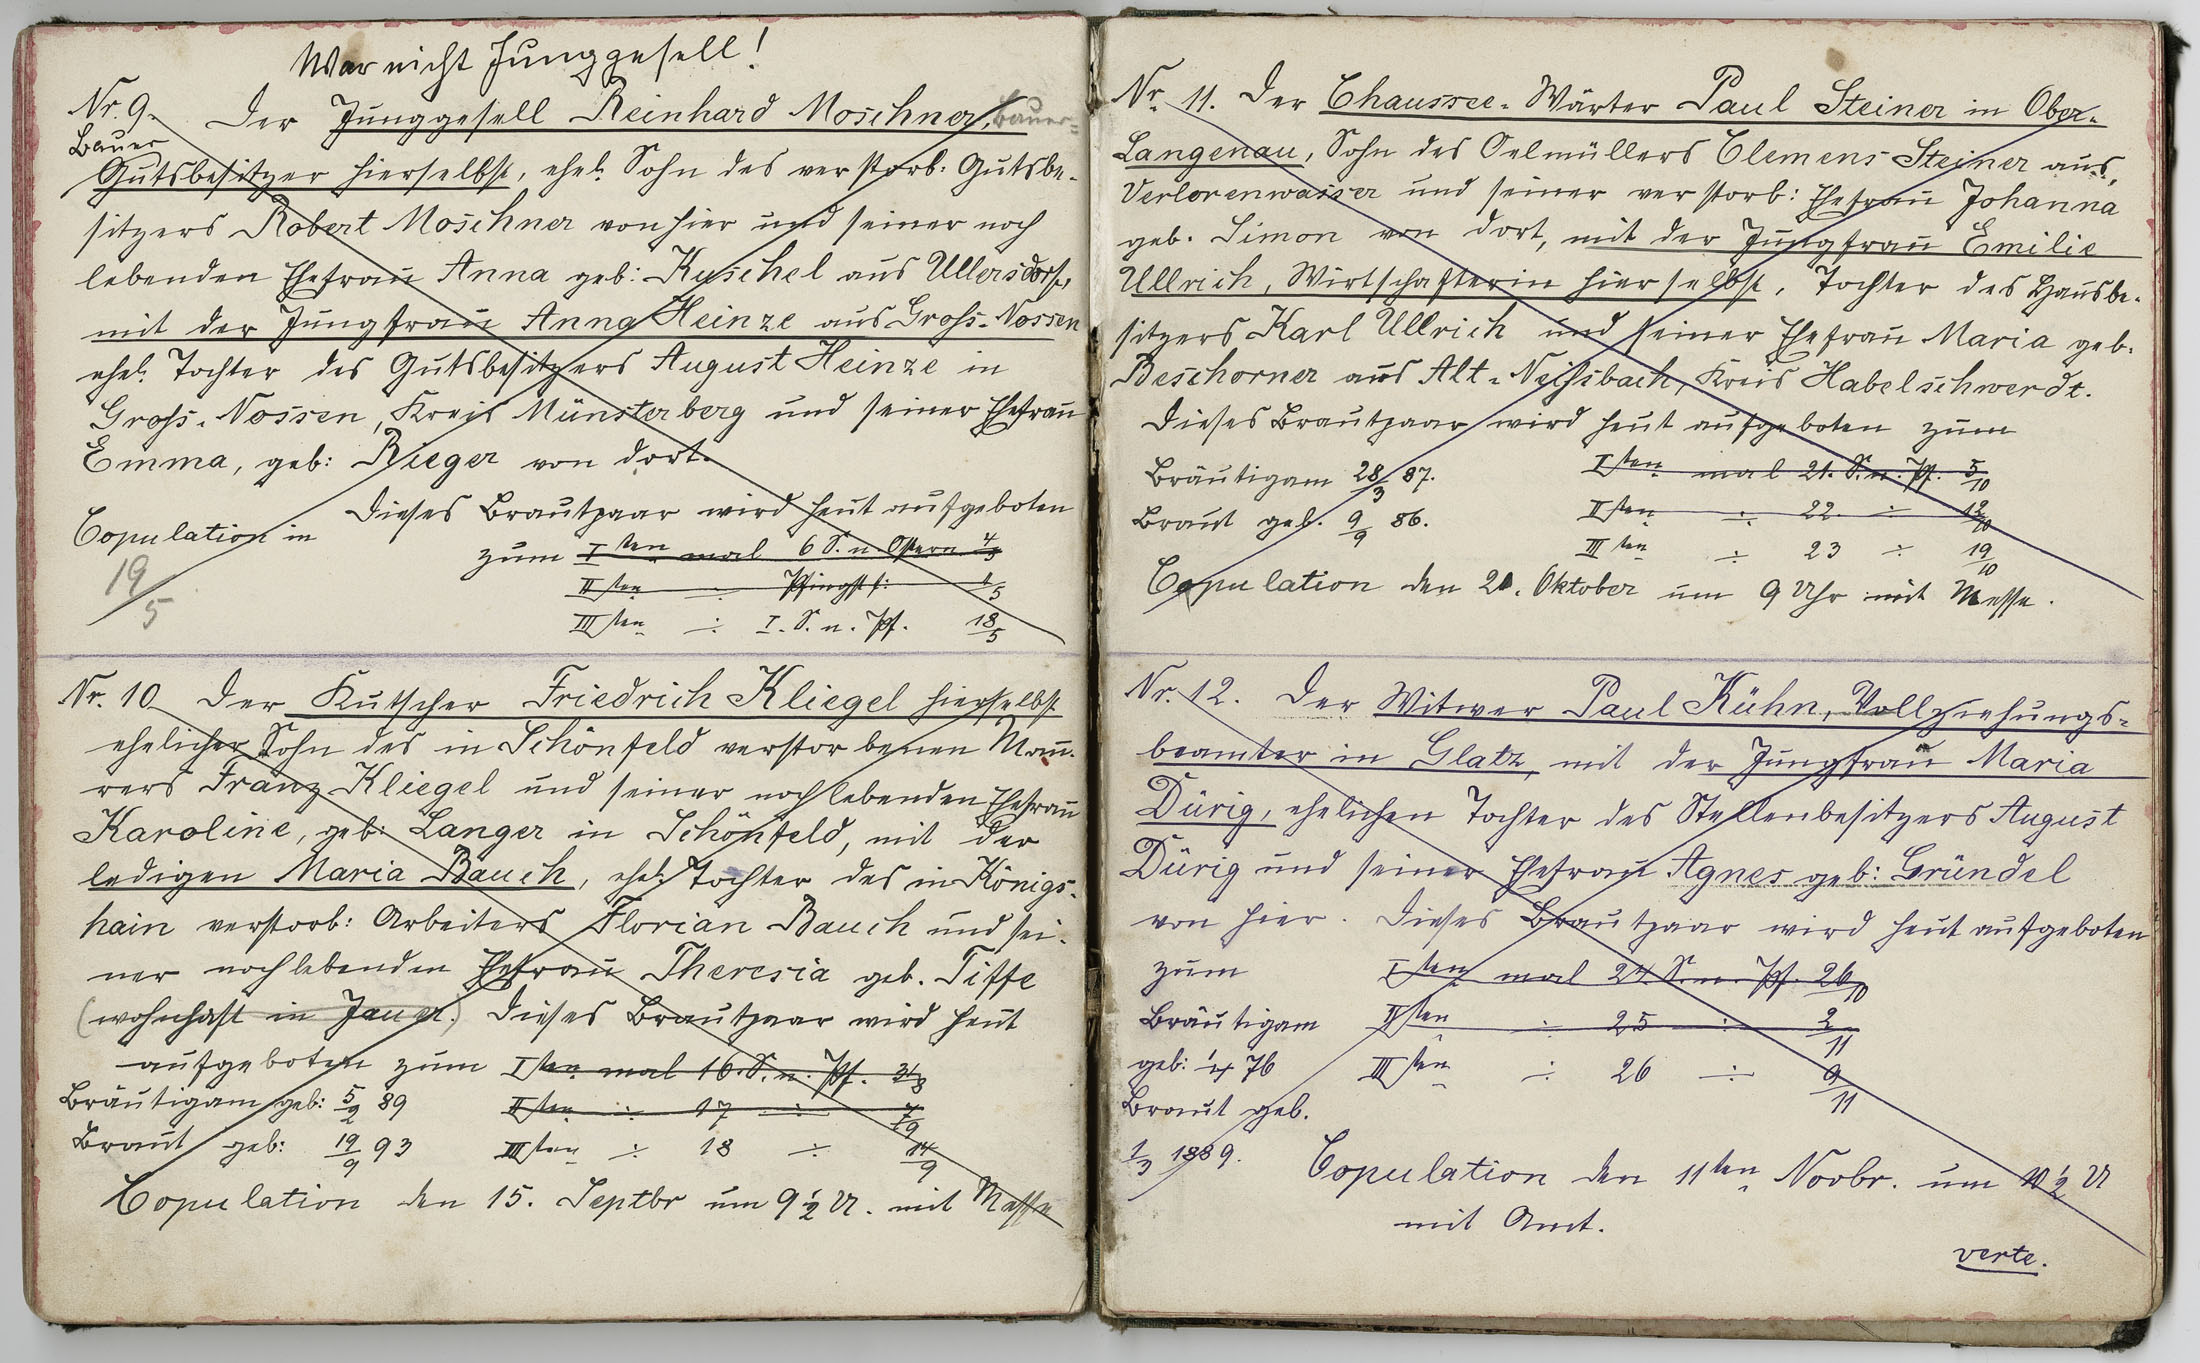 War nicht Junggesell!
Nr. 9. Der Junggesell Reinhard Moschner, Bauer-
Bauer
Gutsbesitzer hierselbst, ehel. Sohn des verstorb: Gutsbe-
sitzers Robert Moschner von hier und seiner noch
lebenden Ehefrau Anna geb: Kuschel aus Ullersdorf,
mit der Jungfrau Anna Heinze aus Groß-Nossen
ehel. Tochter des Gutsbesitzers August Heinze in
Groß-Nossen, Kreis Münsterberg und seiner Ehefrau
Emma, geb: Rieger von dort.
Dieses Brautpaar wird heut aufgeboten
Copulation in
19/5
zum Iten mal 6 S. n. Ostern 4/5
IIten ÷ Pfingstf:
IIIten ÷ I. S. n. Pf. 18/5
Nr. 10 Der Kutscher Friedrich Kliegel hierselbst
ehelicher Sohn des in Schönfeld verstorbenen Mau-
rers Franz Kliegel und seiner noch lebenden Ehefrau
Karoline, geb: Langer in Schönfeld, mit der
ledigen Maria Bauch, ehel. Tochter des in Königs-
hain verstorb: Arbeiters Florian Bauch und sei-
ner noch lebenden Ehefrau Theresia geb. Tiffe
(wohnhaft in Jauer.) Dieses Brautpaar wird heut
aufgeboten zum Iten mal 16. S. n. Pf. 31/8
Bräutigam geb: 5/2 89 IIten ÷ 17 ÷ 7/9
Braut geb: 19/9 93 IIIten ÷ 18 ÷ 14/9
Copulation den 15. Septbr um 9 1/2 U. mit Messe
Nr. 11. Der Chaussee-Wärter Paul Steiner in Ober-
Langenau, Sohn des Oelmüllers Clemens Steiner aus
Verlorenwasser und seiner verstorb: Ehefrau Johanna
geb. Simon von dort, mit der Jungfrau Emilie
Ullrich, Wirtschafterin hierselbst, Tochter des Hausbe-
sitzers Karl Ullrich und seiner Ehefrau Maria geb.
Beschorner aus Alt-Neißbach, Kreis Habelschwerdt.
Dieses Brautpaar wird heut aufgeboten zum
Bräutigam 28/3 87. Iten mal 21. S. n. Pf. 5/10
Braut geb. 9/9 86. IIten ÷ 22 ÷ 12/10
IIIten ÷ 23 ÷ 19/10
Copulation den 20. Oktober um 9 Uhr mit Messe.
Nr. 12. Der Witwer Paul Kühn, Vollziehungs-
beamter in Glatz, mit der Jungfrau Maria
Dürig, ehelichen Tochter des Stellenbesitzers August
Dürig und seiner Ehefrau Agnes geb: Gründel
von hier. Dieses Brautpaar wird heut aufgeboten
zum Iten mal 24. S. n. Pf. 26/10
Bräutigam IIten ÷ 25 ÷ 2/11
geb: 1/4 76 IIIten ÷ 26 ÷ 9/11
Braut geb.
1/3 1889. Copulation den 11ten Novbr. um 10 1/2 U
mit Amt.
verte.